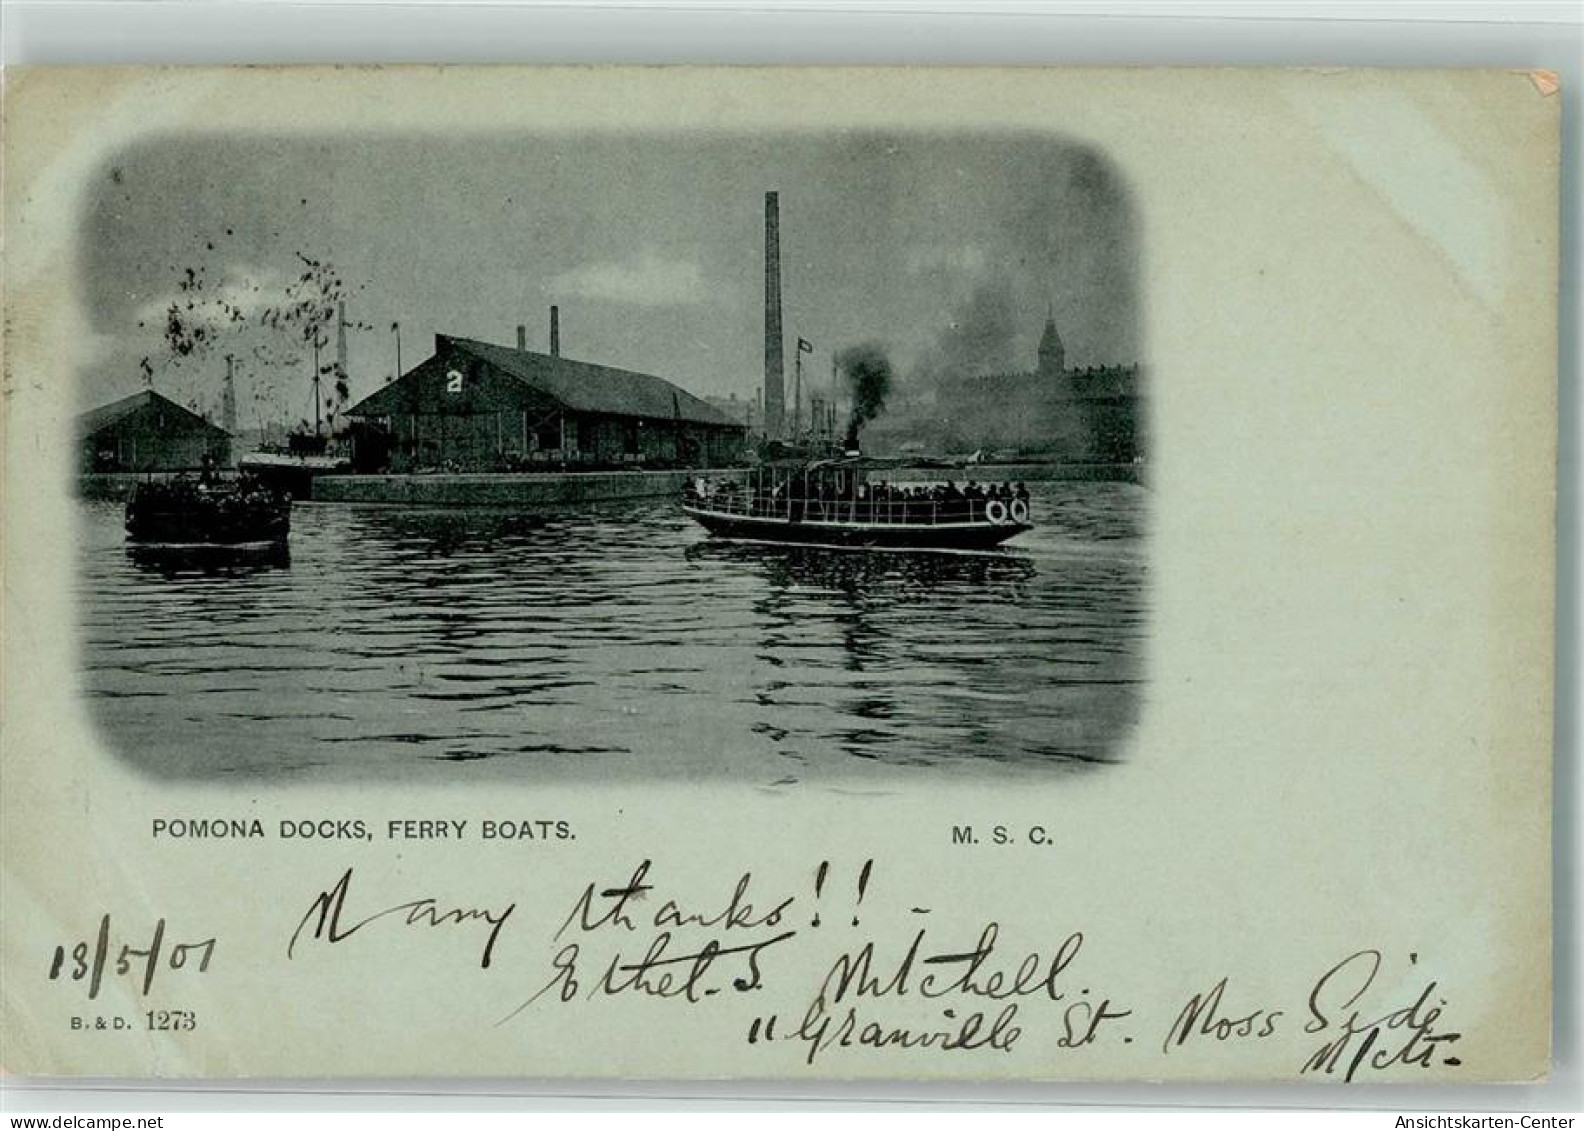 2
POMONA DOCKS, FERRY BOATS.
M. S. C.
Many thanks!! -
18/5/01
Ethel. S. Mitchell.
11 Granville St. Moss Side
M/ctr-
B. & D. 1273
www.delcampe.net
Ansichtskarten-Center